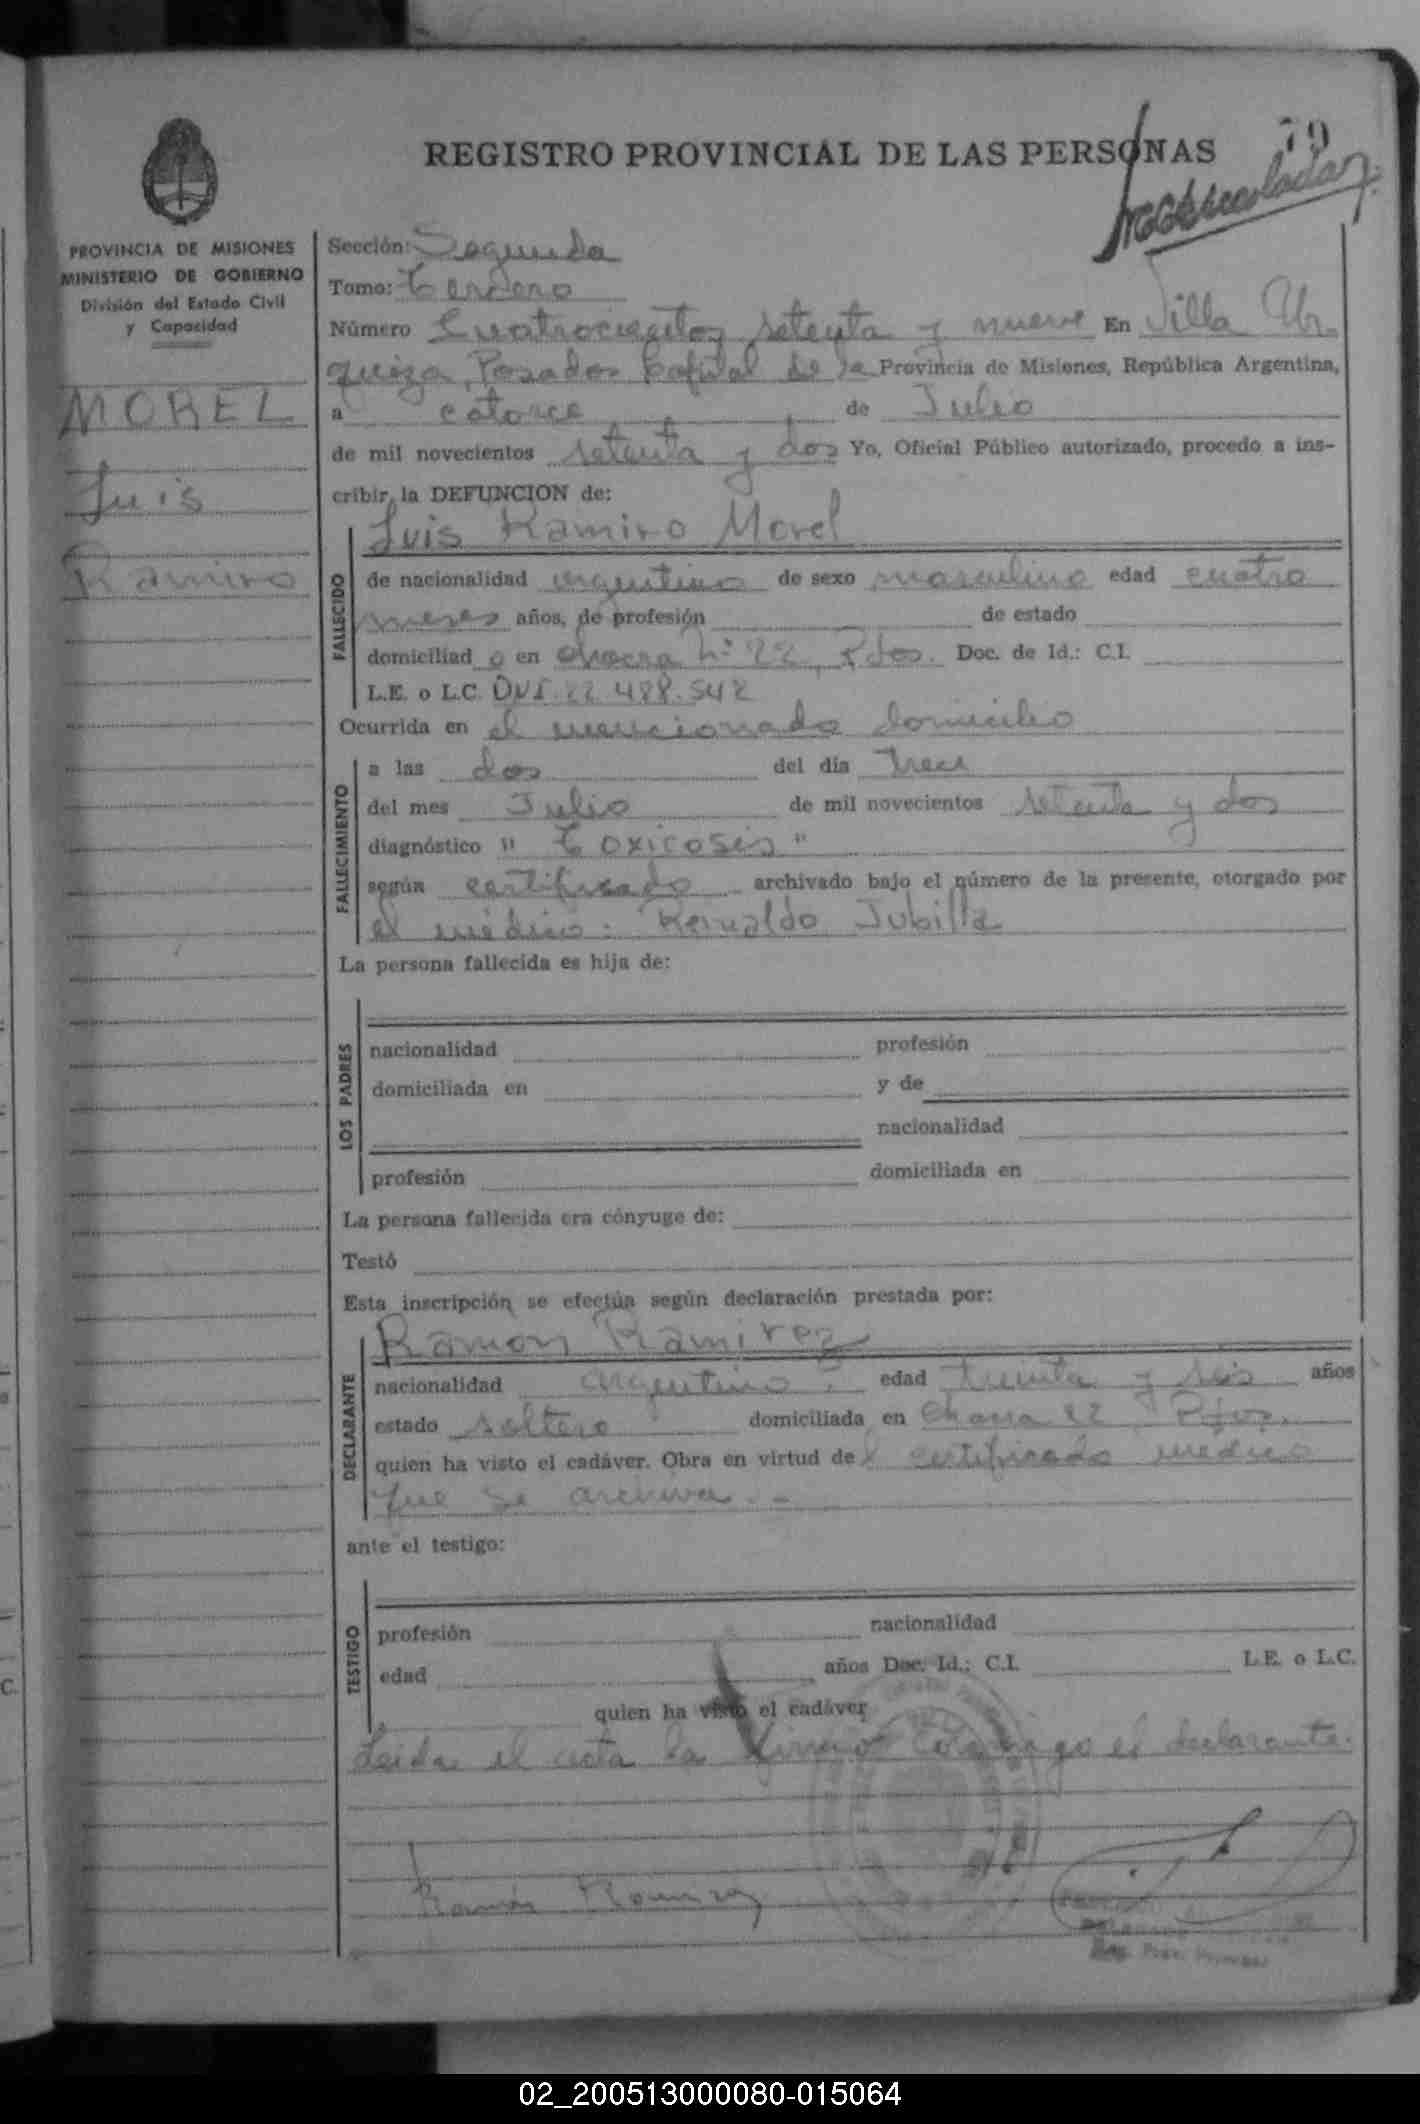 REGISTRO PROVINCIAL DE LAS PERSONAS
79
PROVINCIA DE MISIONES
MINISTERIO DE GOBIERNO
División del Estado Civil
y Capacidad
MOREL
Luis
Ramiro
Sección: Segunda
Tomo: Tercero
Número Cuatrocientos setenta y nueve En Villa Ur-
quiza, Posadas Capital de la Provincia de Misiones, República Argentina,
a catorce de Julio
de mil novecientos setenta y dos Yo, Oficial Público autorizado, procedo a ins-
cribir la DEFUNCION de:
Luis Ramiro Morel
FALLECIDO
de nacionalidad argentino de sexo masculino edad cuatro
meses años, de profesión de estado
domiciliad o en chacra Nº 22, Pdas. Doc. de Id.: C.I.
L.E. o L.C. DNI. 22.488.542
Ocurrida en el mencionado domicilio
FALLECIMIENTO
a las dos del día trece
del mes Julio de mil novecientos setenta y dos
diagnóstico " Toxicosis "
según certificado archivado bajo el número de la presente, otorgado por
el médico: Reinaldo
La persona fallecida es hija de:
LOS PADRES
nacionalidad profesión
domiciliada en y de
nacionalidad
profesión domiciliada en
La persona fallecida era cónyuge de:
Testó
Esta inscripción se efectúa según declaración prestada por:
Ramon Ramirez
DECLARANTE
nacionalidad argentino. edad treinta y seis años
estado soltero domiciliada en Chacra 22 Pdas.
quien ha visto el cadáver. Obra en virtud del certificado médico
que se archiva. -
ante el testigo:
TESTIGO
profesión nacionalidad
edad años Doc. Id.: C.I. L.E. o L.C.
quien ha visto el cadáver
Leida el acta la firmó conmigo el declarante.
Ramón Ramirez
02_200513000080-015064